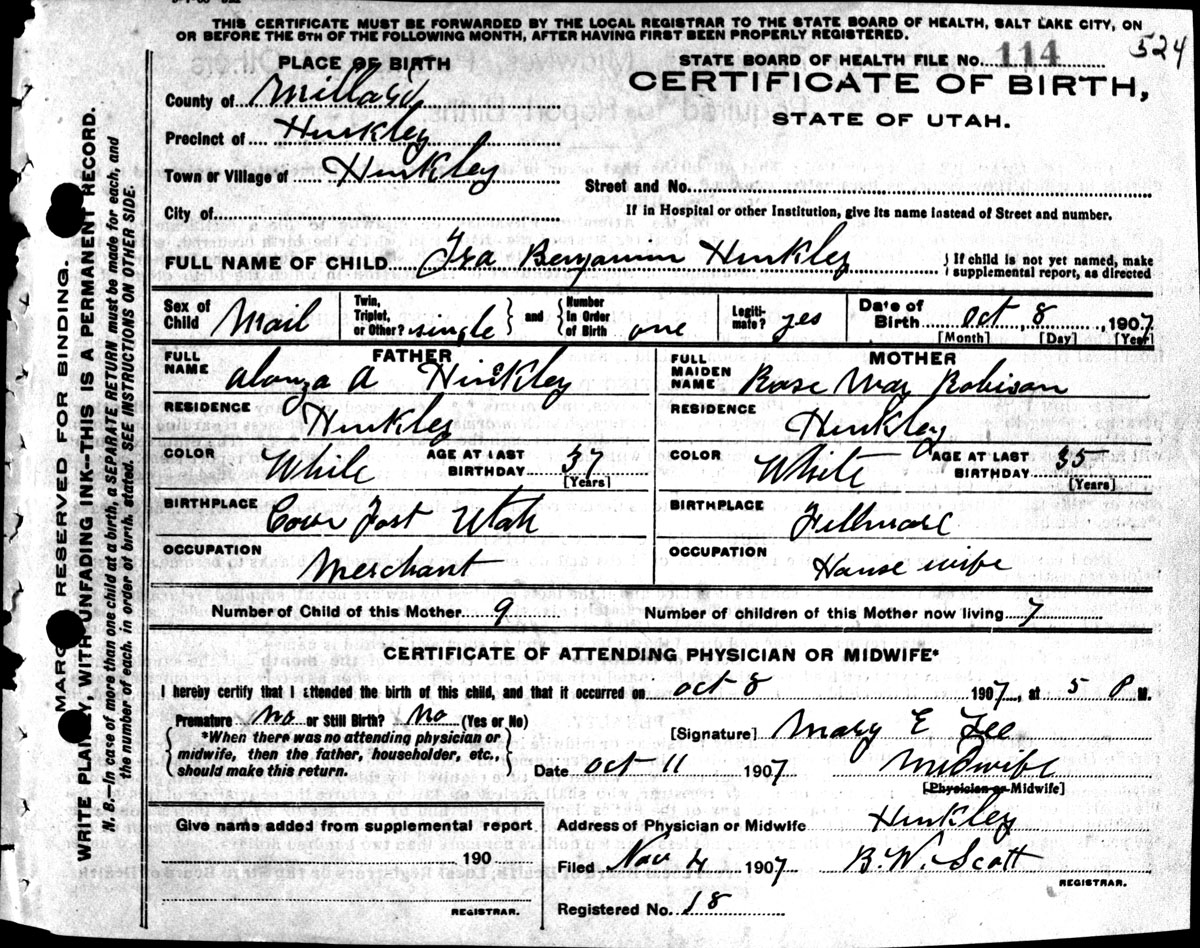 THIS CERTIFICATE MUST BE FORWARDED BY THE LOCAL REGISTRAR TO THE STATE BOARD OF HEALTH, SALT LAKE CITY, ON
OR BEFORE THE 5TH OF THE FOLLOWING MONTH, AFTER HAVING FIRST BEEN PROPERLY REGISTERED.
524
PLACE OF BIRTH
STATE BOARD OF HEALTH FILE No. 114
CERTIFICATE OF BIRTH,
STATE OF UTAH.
County of Millard
Precinct of Hinkley
Town or Village of Hinkley
Street and No.
City of
If in Hospital or other Institution, give its name instead of Street and number.
FULL NAME OF CHILD Ira Benjamin Hinkley
If child is not yet named, make supplemental report, as directed
Sex of Child Mail
Twin, Triplet, or Other? single and Number In Order of Birth one
Legitimate? yes
Date of Birth Oct, 8, 1907
[Month] [Day] [Year]
FATHER
FULL NAME Alonza A Hinckley
RESIDENCE Hinkley
COLOR White AGE AT LAST BIRTHDAY 37
[Years]
BIRTHPLACE Cove Fort Utah
OCCUPATION Merchant
MOTHER
FULL MAIDEN NAME Rose May Robison
RESIDENCE Hinkley
COLOR White AGE AT LAST BIRTHDAY 35
[Years]
BIRTHPLACE Fillmore
OCCUPATION House wife
Number of Child of this Mother 9 Number of children of this Mother now living 7
CERTIFICATE OF ATTENDING PHYSICIAN OR MIDWIFE*
I hereby certify that I attended the birth of this child, and that it occurred on Oct 8 1907, at 5 P M.
Premature No or Still Birth? No (Yes or No)
*When there was no attending physician or
midwife, then the father, householder, etc.,
should make this return.
[Signature] Mary E Lee
Date Oct 11 1907 Midwife
[Physician or Midwife]
Give name added from supplemental report
190
REGISTRAR.
Address of Physician or Midwife Hinkley
Filed Nov 4 1907 B. W. Scott
REGISTRAR.
Registered No. 18
MARGIN RESERVED FOR BINDING.
WRITE PLAINLY, WITH UNFADING INK--THIS IS A PERMANENT RECORD.
N. B.--In case of more than one child at a birth, a SEPARATE RETURN must be made for each, and
the number of each, in order of birth, stated. SEE INSTRUCTIONS ON OTHER SIDE.